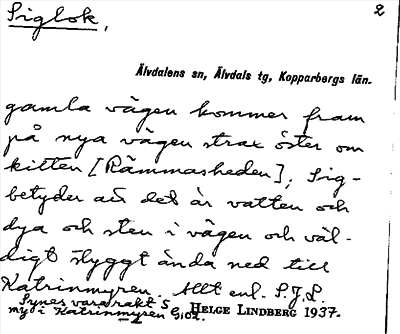 Siglok,
2
Älvdalens sn, Älvdals tg, Kopparbergs län.
gamla vägen kommer fram
på nya vägen strax öster om
kitten [Rämmasheden]; Sig-
betyder att det är vatten och
dya och sten i vägen och väl-
digt styggt ända ned till
Katrinmyren. Allt enl. S.J.L.
Synes vara rakt S
my i Katrinmyren
HELGE LINDBERG 1937.